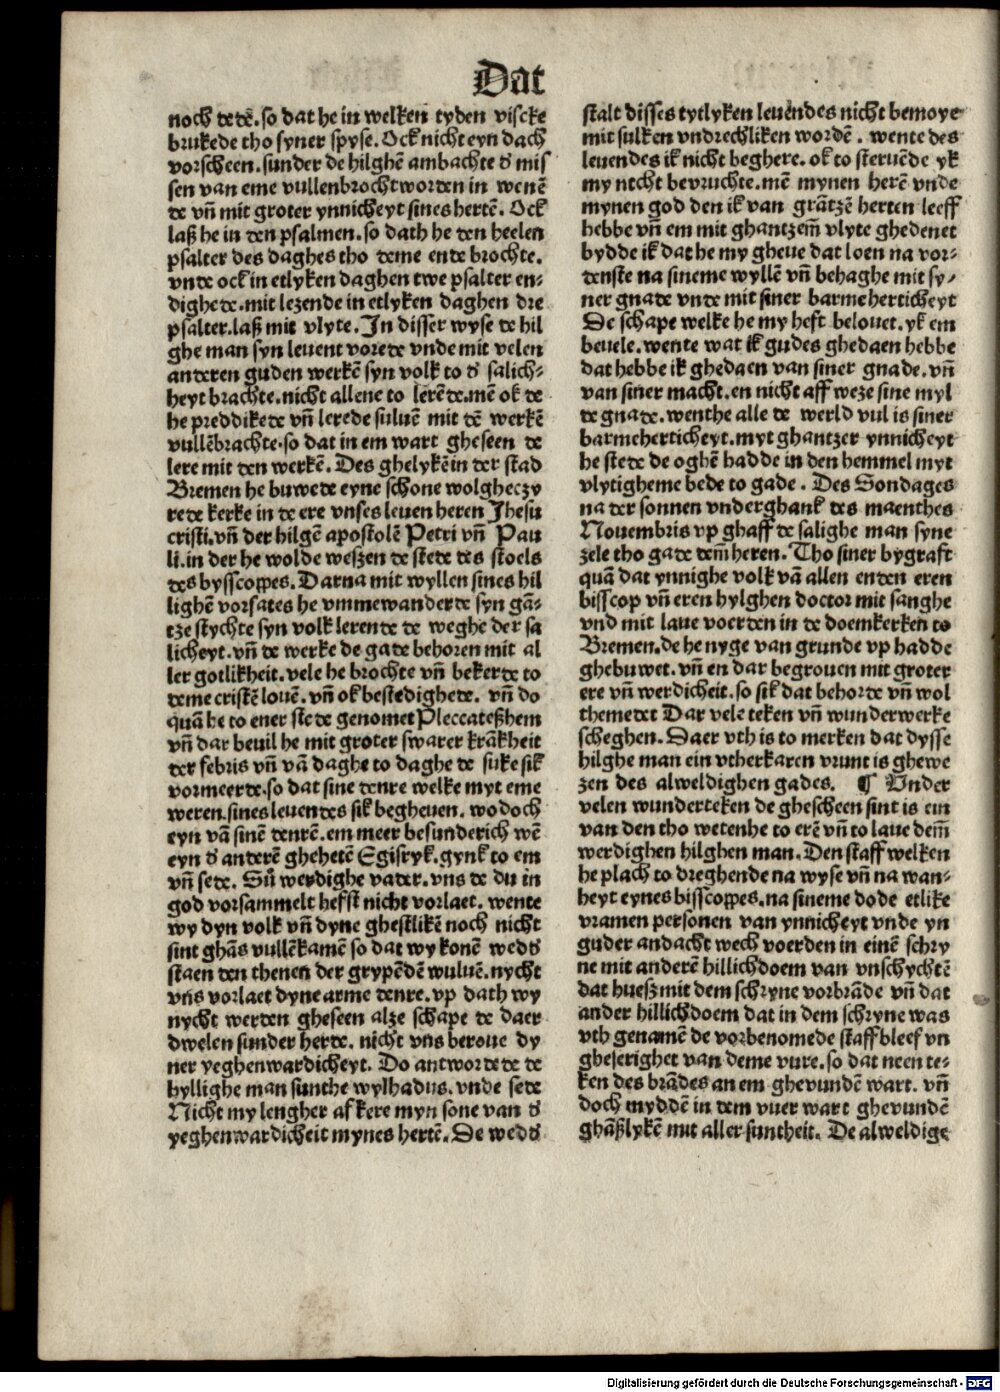 Dat
noch dede. so dat he in welken tyden viscke
brukede tho syner spyse. Ock nicht eyn dach
vorscheen. sunder de hilghen̄ ambachte d' mis
sen van eme vullenbrocht worden in wenē
de vn̄ mit groter ynnicheyt sines hertē. Ock
laß he in den psalmen. so dath he den heelen
psalter des daghes tho deme ende brochte.
vnde ock in etlyken daghen twe psalter en⸗
dighede. mit lezende in etlyken daghen dre
psalter. laß mit vlyte. In disser wyse de hil
ghe man syn leuent vorede vnde mit velen
anderen guden werkē syn volk to d' salich⸗
heyt brachte. nicht allene to lerēde. mē ok de
he preddikede vn̄ lerede suluē mit dē werkē
vullēbrachte. so dat in em wart gheseen de
lere mit den werkē. Des ghelykē in der stad
Bremen he buwede eyne schone wolgheczy
rede kerke in de ere vnses leuen heren Jhesu
cristi. vn̄ der hilgē apostolē Petri vn̄ Pau
li. in der he wolde weszen de stede des stoels
des bysscoppes. Darna mit wyllen sines hil
lighē vorsates he vmmewanderde syn gā⸗
tze stychte syn volk lerende de weghe der sa
licheyt. vn̄ de werke de gade behoren mit al
ler gotlikheit. vele he brochte vn̄ bekerde to
deme cristē louē. vn̄ ok bestedighede. vn̄ do
quā he to ener stede genomet Pleccateßhem
vn̄ dar beuil he mit groter swarer krākheit
der febris vn̄ vā daghe to daghe de suke sik
vormeerde. so dat sine denre welke myt eme
weren. sines leuendes sik begheuen. wo doch
eyn vā sinē denrē. em meer besunderich wē
eyn d' anderē ghehetē Egisryk. gynk to em
vn̄ sede. Sū werdighe vader. vns de du in
god vorsammelt hefst nicht vorlaet. wente
wy dyn volk vn̄ dyne ghestlikē noch nicht
sint ghās vullēkamē so dat wy konē wedd'
staen den thenen der grypēdē wuluē. nycht
vns vorlaet dyne arme denre. vp dath wy
nycht werden gheseen alze schape de daer
dwelen sunder herde. nicht vns beroue dy
ner yeghenwardicheyt. Do antwordede de
hyllighe man sunthe wylhadus. vnde sede
Nicht my lengher af kere myn sone van d'
yeghenwardicheit mynes hertē. De wedd'
stalt disses tytlyken leuēndes nicht bemoye
mit sulken vndrechliken wordē. wente des
leuendes ik nicht beghere. ok to steruēde yk
my ntcht bevruchte. mē mynen herē vnde
mynen god den ik van grātzē herten leeff
hebbe vn̄ em mit ghantzem̄ vlyte ghedenet
bydde ik dat he my gheue dat loen na vor⸗
denste na sineme wyllē vn̄ behaghe mit sy⸗
ner gnade vnde mit siner barmeherticheyt
De schape welke he my heft belouet. yk em
beuele. wente wat ik gudes ghedaen hebbe
dat hebbe ik ghedaen van siner gnade. vn̄
van siner macht. en nicht aff weze sine myl
de gnade. wenthe alle de werld vul is siner
barmeherticheyt. myt ghantzer ynnicheyt
he stede de oghē hadde in den hemmel myt
vlytigheme bede to gade. Des Sondages
na der sonnen vnderghank des maenthes
Nouembris vp ghaff de salighe man syne
zele tho gade dem̄ heren. Tho siner bygraft
quā dat ynnighe volk vā allen enden eren
bisscop vn̄ eren hylghen doctor mit sanghe
vnd mit laue voerden in de doemkerken to
Bremen. de he nyge van grunde vp hadde
ghebuwet. vn̄ en dar begrouen mit groter
ere vn̄ werdicheit. so sik dat behorde vn̄ wol
themedet Dar vele teken vn̄ wunderwerke
scheghen. Daer vth is to merken dat dysse
hilghe man ein vtherkaren vrunt is ghewe
zen des alweldighen gades. ¶ Under
velen wunderteken de ghescheen sint is ein
van den tho wetenhe to erē vn̄ to laue dem̄
werdighen hilghen man. Den staff welken
he plach to dreghende na wyse vn̄ na wan⸗
heyt eynes bisscoppes. na sineme dode etlike
vramen personen van ynnicheyt vnde yn
guder andacht wech voerden in einē schry
ne mit anderē hillichdoem van vnschychtē
dat huesz mit dem schryne vorbrāde vn̄ dat
ander hillichdoem dat in dem schryne was
vth genamē de vorbenomede staff bleef vn
gheserighet van deme vure. so dat neen te⸗
ken des brādes an em ghevundē wart. vn̄
doch myddē in dem vuer wart ghevundē
ghāßlykē mit aller suntheit. De alweldige
Digitalisierung gefördert durch die Deutsche Forschungsgemeinschaft - DFG